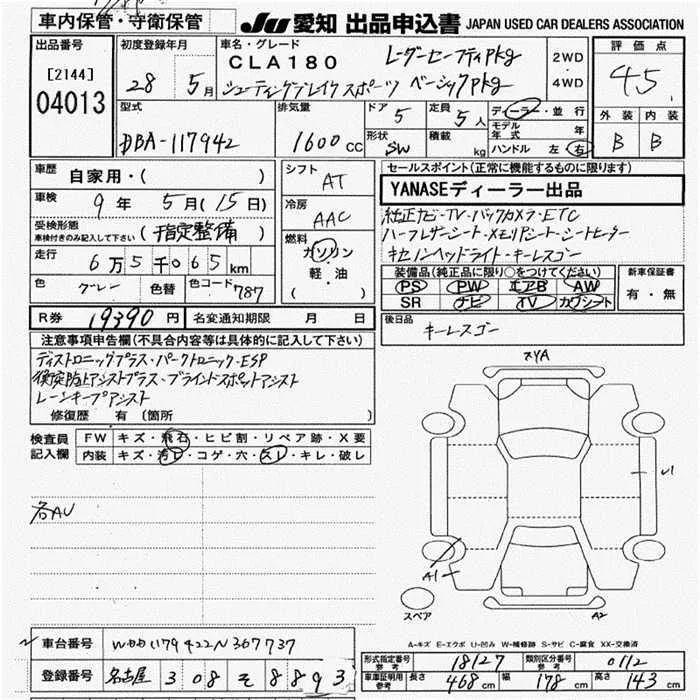 車内保管・守衛保管
JU 愛知 出品申込書 JAPAN USED CAR DEALERS ASSOCIATION
出品番号
[2144]
04013
初度登録年月
28 5月
車名・グレード
CLA180 レーダーセーフティPkg
シューティングブレイクスポーツ ベーシックPkg
2WD
・
4WD
評価点
4.5
外装 内装
B B
型式
DBA-117942
排気量
1600 cc
ドア 5
形状 SW
定員 5人
積載 kg
ディーラー・並行
モデル年式 年
ハンドル 左 右
車歴
自家用・( )
車検
9年 5月(15日)
受検形態
車検付きのみ記入して下さい
(指定整備)
走行
6万5千065km
色 グレー 色替 色コード 787
シフト
AT
冷房
AAC
燃料
ガソリン
軽・油
( )
セールスポイント(正常に機能するものに限り)
YANASEディーラー出品
純正ナビ・TV・バックカメラ・ETC
ハーフレザーシート・メモリPシート・シートヒーター
キセノンヘッドライト・キーレスゴー
装備品(純正品に限り○をつけてください)
PS PW エアB AW
SR ナビ TV カワシート
新車保証書
有・無
R券 19390円 名変通知期限 月 日
後日品
キーレスゴー
注意事項申告欄(不具合内容等は具体的に記入して下さい)
ディストロニックプラス・パークトロニック・ESP
衝突防止アシストプラス・ブラインドスポットアシスト
レーンキープアシスト
修復歴 有 (箇所 )
検査員
記入欄
FW キズ・飛石・ヒビ割・リペア跡・X要
内装 キズ・汚レ・コゲ・穴・スレ・キレ・破レ
各AU
スペア
A1
A2
A-キズ E-エクボ U-凹み W-補修跡 S-サビ C-腐食 XX-交換済
車台番号 WDD1179422N367737
登録番号 名古屋 308 そ 8893
形式指定番号
参考
18127
類別区分番号
参考
0112
車庫証明用
参考
長さ 468cm 幅 178cm 高さ 143cm